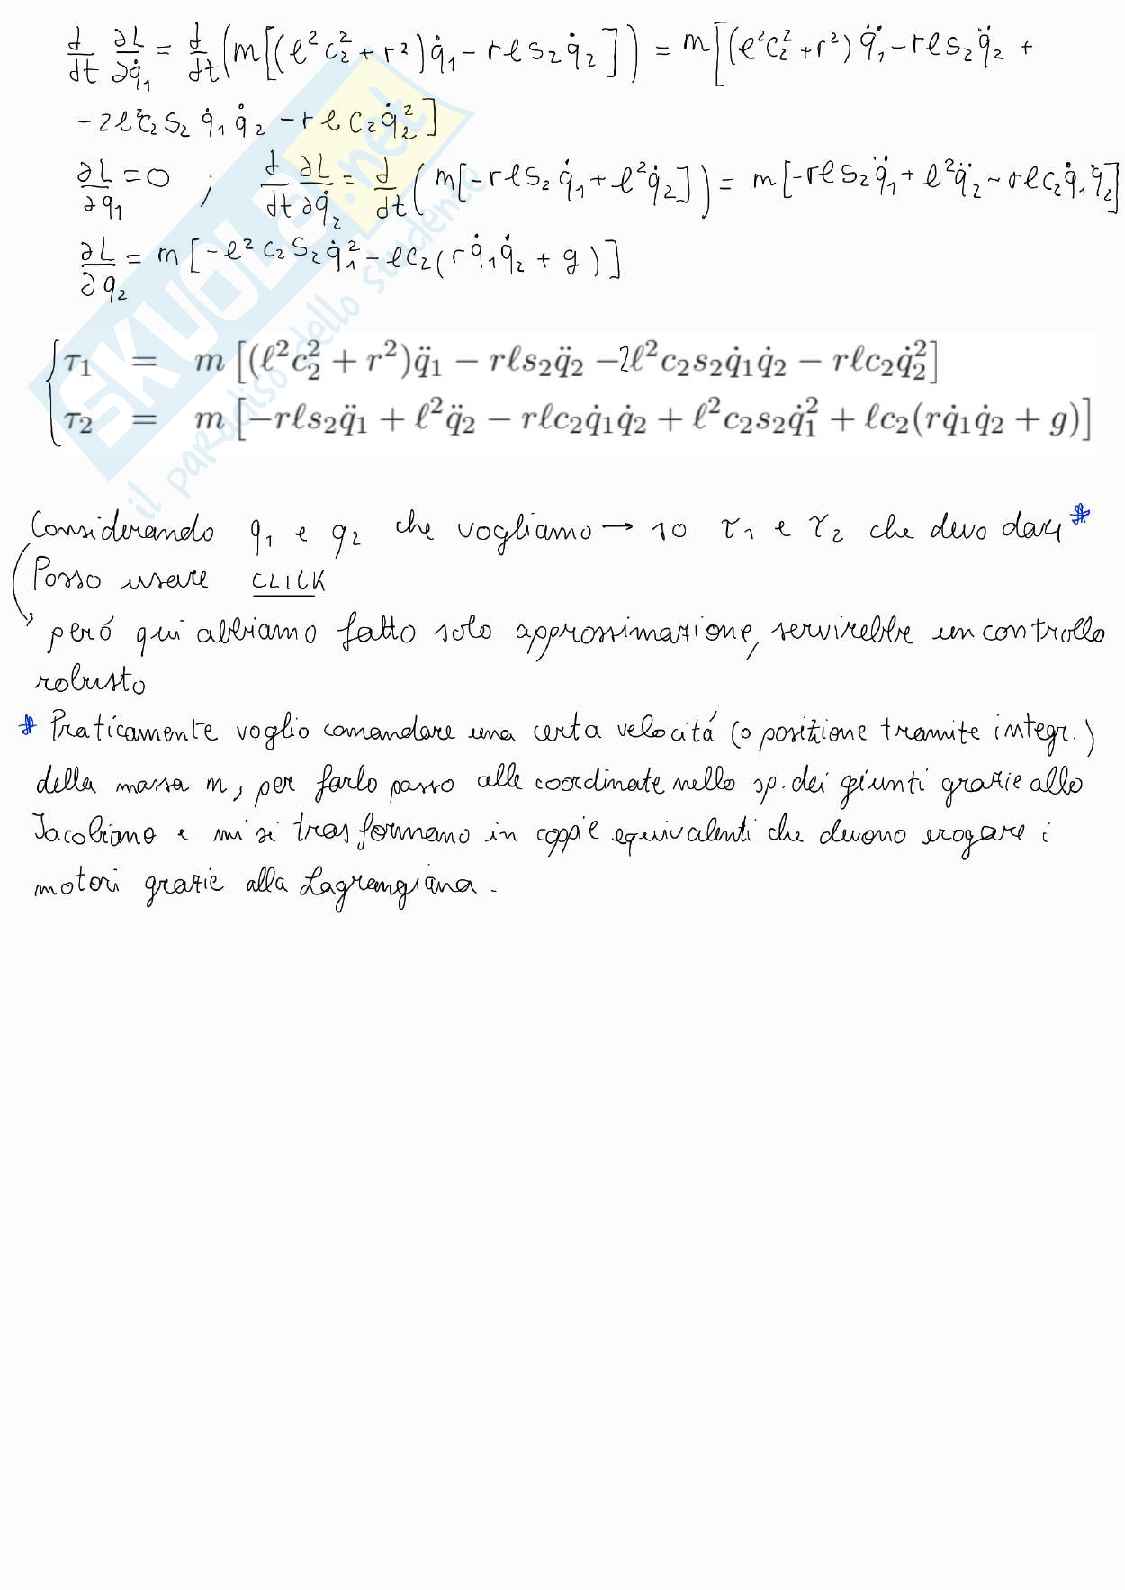 d/dt ∂L/∂q̇₁ = d/dt (m[(ℓ²c₂² + r²)q̇₁ - rℓs₂q̇₂]) = m[(ℓ²c₂² + r²)q̈₁ - rℓs₂q̈₂ +
- 2ℓ²c₂s₂q̇₁q̇₂ - rℓc₂q̇₂²]
∂L/∂q₁ = 0 ; d/dt ∂L/∂q̇₂ = d/dt (m[-rℓs₂q̇₁ + ℓ²q̇₂]) = m[-rℓs₂q̈₁ + ℓ²q̈₂ - rℓc₂q̇₁q̇₂]
∂L/∂q₂ = m[-ℓ²c₂s₂q̇₁² - ℓc₂(rq̇₁q̇₂ + g)]
τ₁ = m[(ℓ²c₂² + r²)q̈₁ − rℓs₂q̈₂ −2ℓ²c₂s₂q̇₁q̇₂ − rℓc₂q̇₂²]
τ₂ = m[−rℓs₂q̈₁ + ℓ²q̈₂ − rℓc₂q̇₁q̇₂ + ℓ²c₂s₂q̇₁² + ℓc₂(rq̇₁q̇₂ + g)]
Considerando q₁ e q₂ che vogliamo → so τ₁ e τ₂ che devo dare *
Posso usare CLICK
però qui abbiamo fatto solo approssimazione, servirebbe un controllo
robusto
* Praticamente voglio comandare una certa velocitá (o posizione tramite integr.)
della massa m, per farlo passo alle coordinate nello sp. dei giunti grazie allo
Jacobiano e mi si trasformano in coppie equivalenti che devono erogare i
motori grazie alla Lagrangiana.
SKUOLA.net
il paradiso dello studente